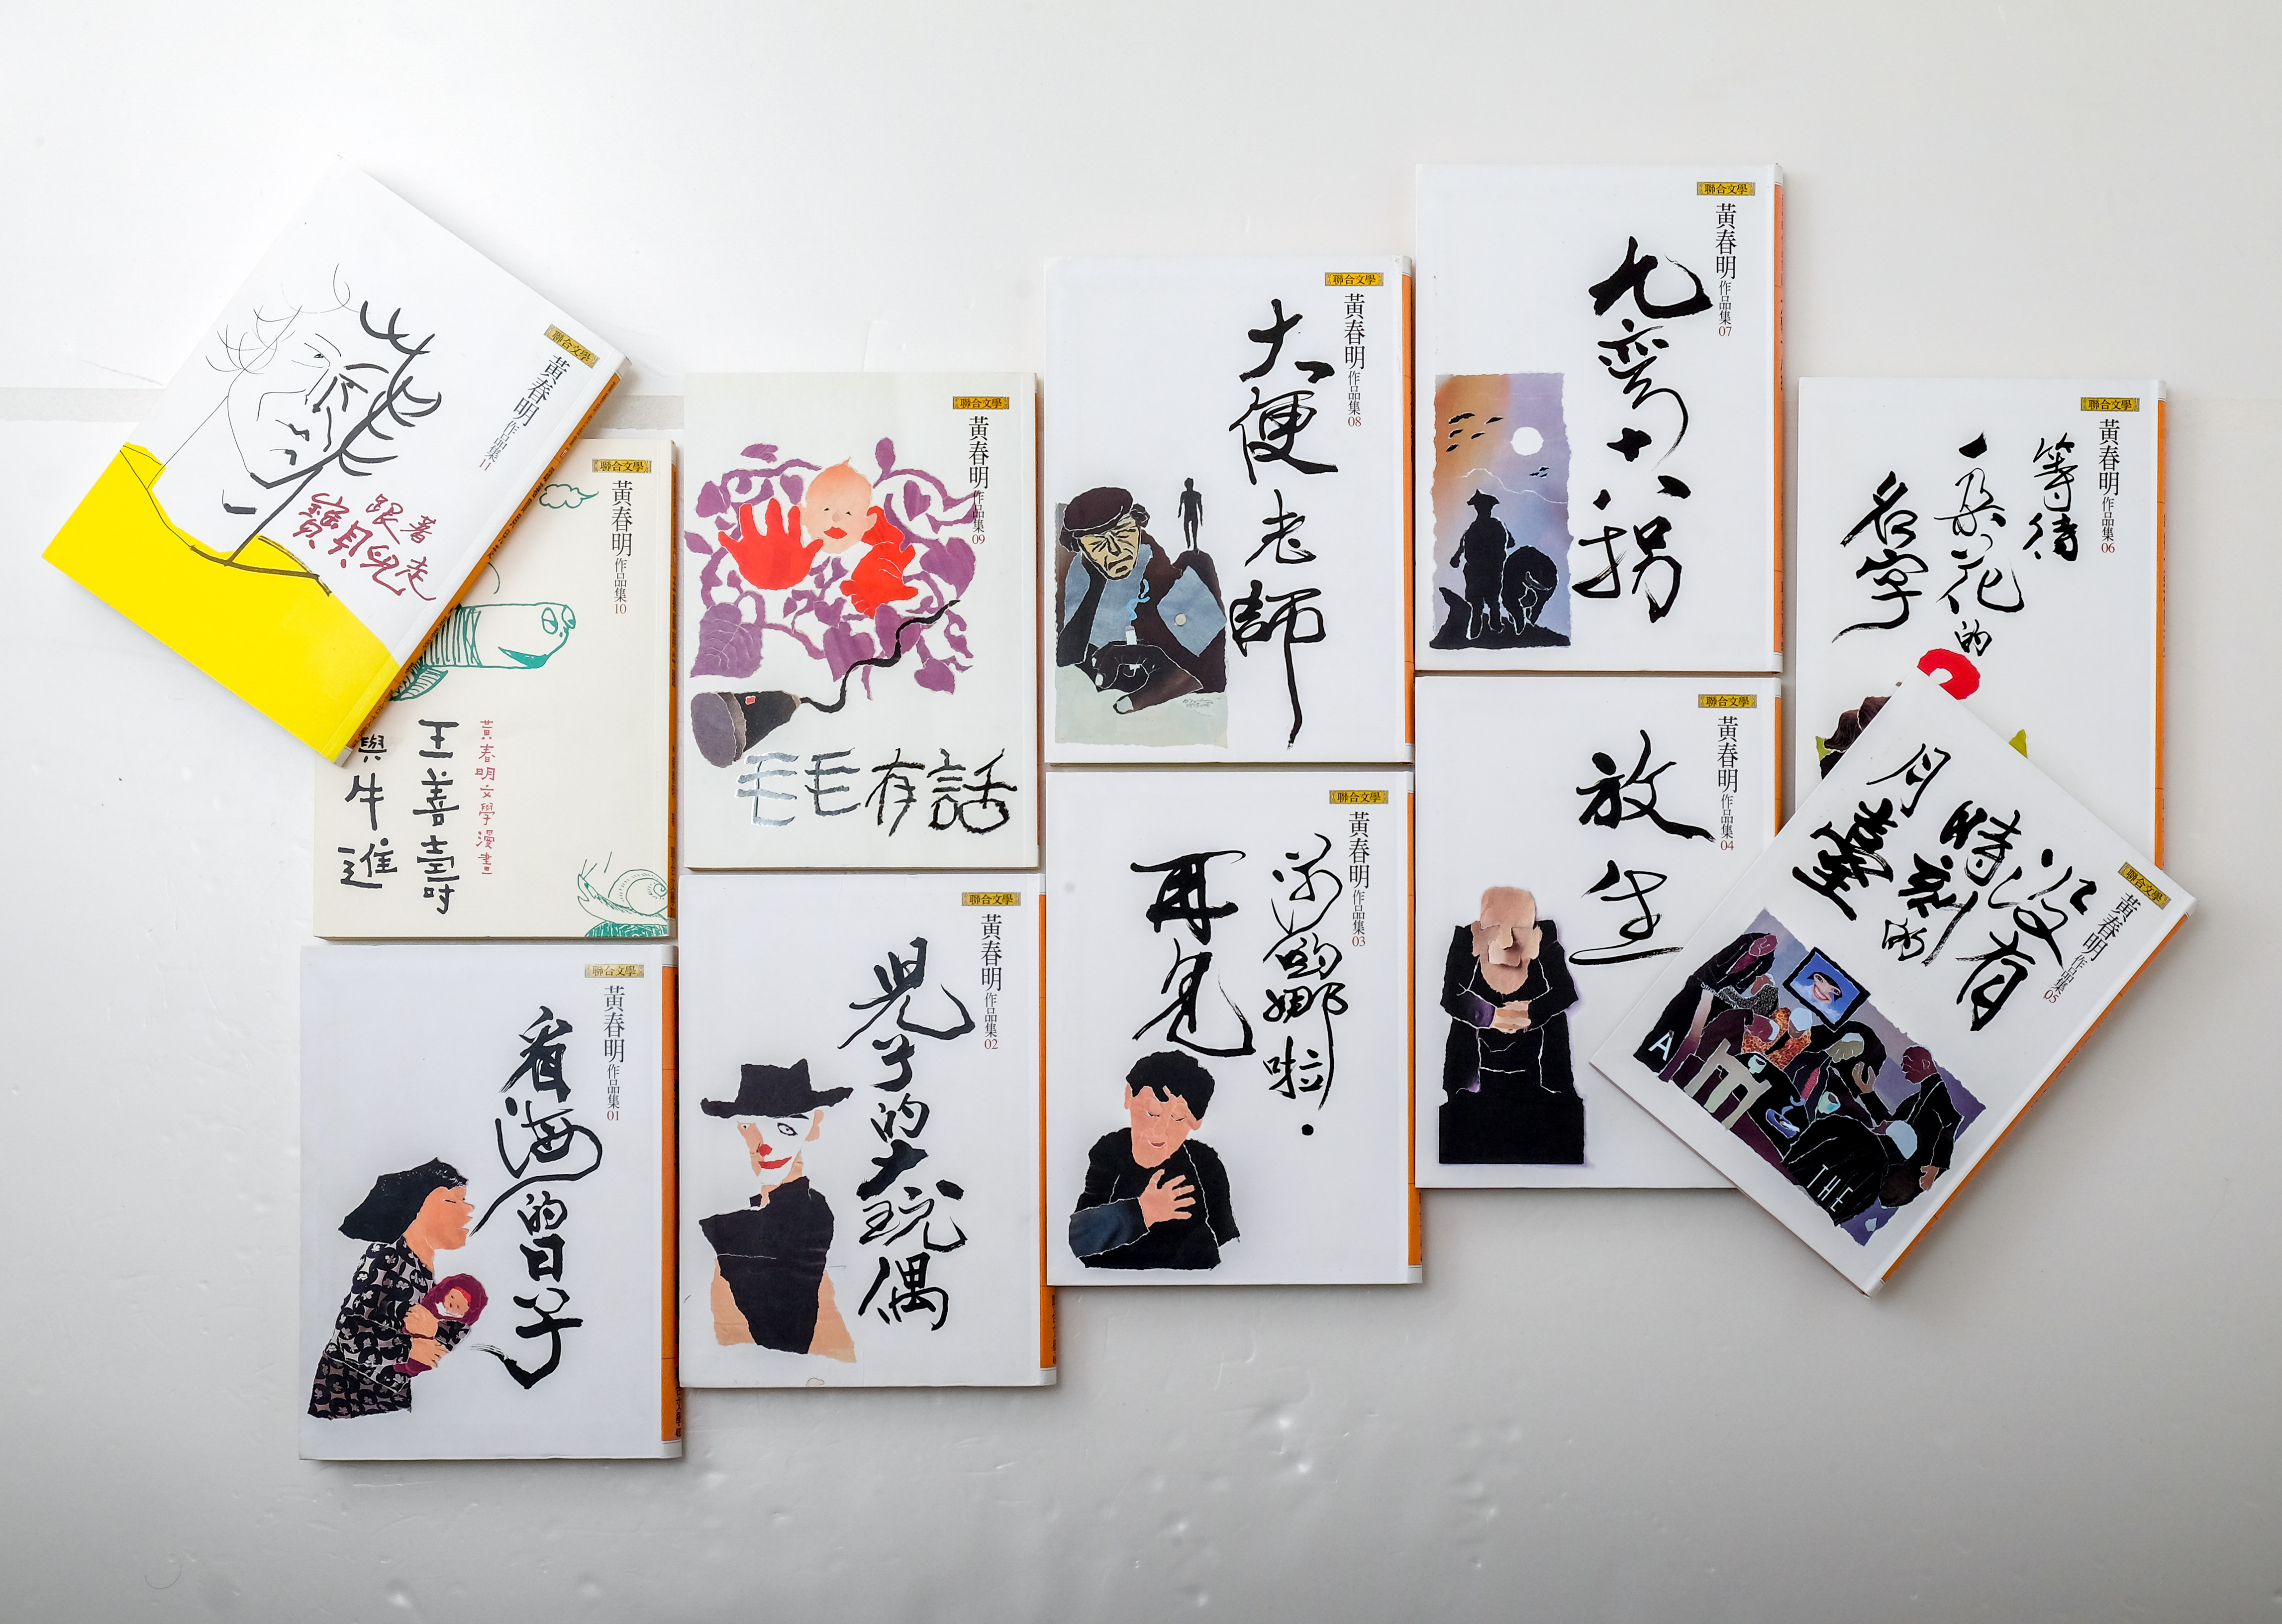 聯合文學
黃春明作品集11
跟著
寶貝兒走
聯合文學
黃春明作品集10
黃春明文學漫畫
王善壽
與牛進
聯合文學
黃春明作品集09
毛毛有話
聯合文學
黃春明作品集08
大便老師
聯合文學
黃春明作品集07
九彎十八拐
聯合文學
黃春明作品集06
等待
一朵花的
名字
聯合文學
黃春明作品集01
看海的日子
聯合文學
黃春明作品集02
兒子的大玩偶
聯合文學
黃春明作品集03
莎喲娜啦·
再見
聯合文學
黃春明作品集04
放生
聯合文學
黃春明作品集05
沒有
時刻的
月臺
A
THE